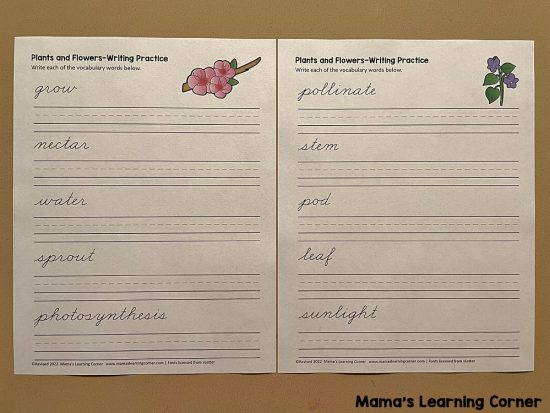 Plants and Flowers-Writing Practice
Write each of the vocabulary words below.
grow
nectar
water
sprout
photosynthesis
©Revised 2022 Mama's Learning Corner www.mamaslearningcorner.com | Fonts licensed from sLetter
Plants and Flowers-Writing Practice
Write each of the vocabulary words below.
pollinate
stem
pod
leaf
sunlight
©Revised 2022 Mama's Learning Corner www.mamaslearningcorner.com | Fonts licensed from sLetter
Mama's Learning Corner